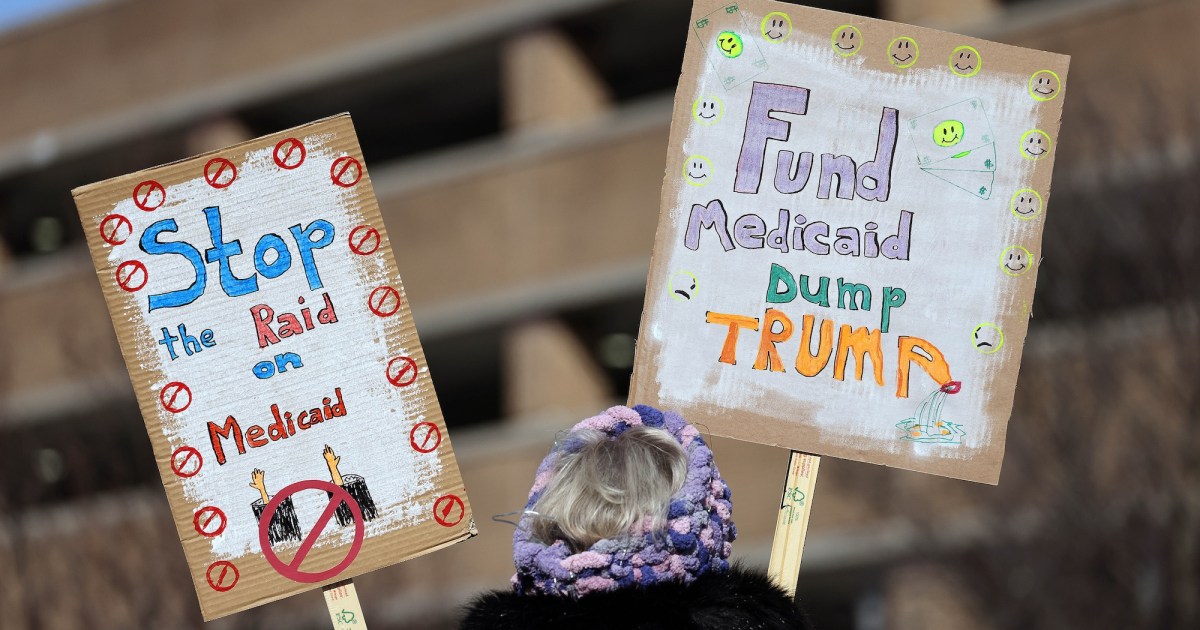 Stop
the Raid
on
Medicaid
Fund
Medicaid
Dump
TRUMP